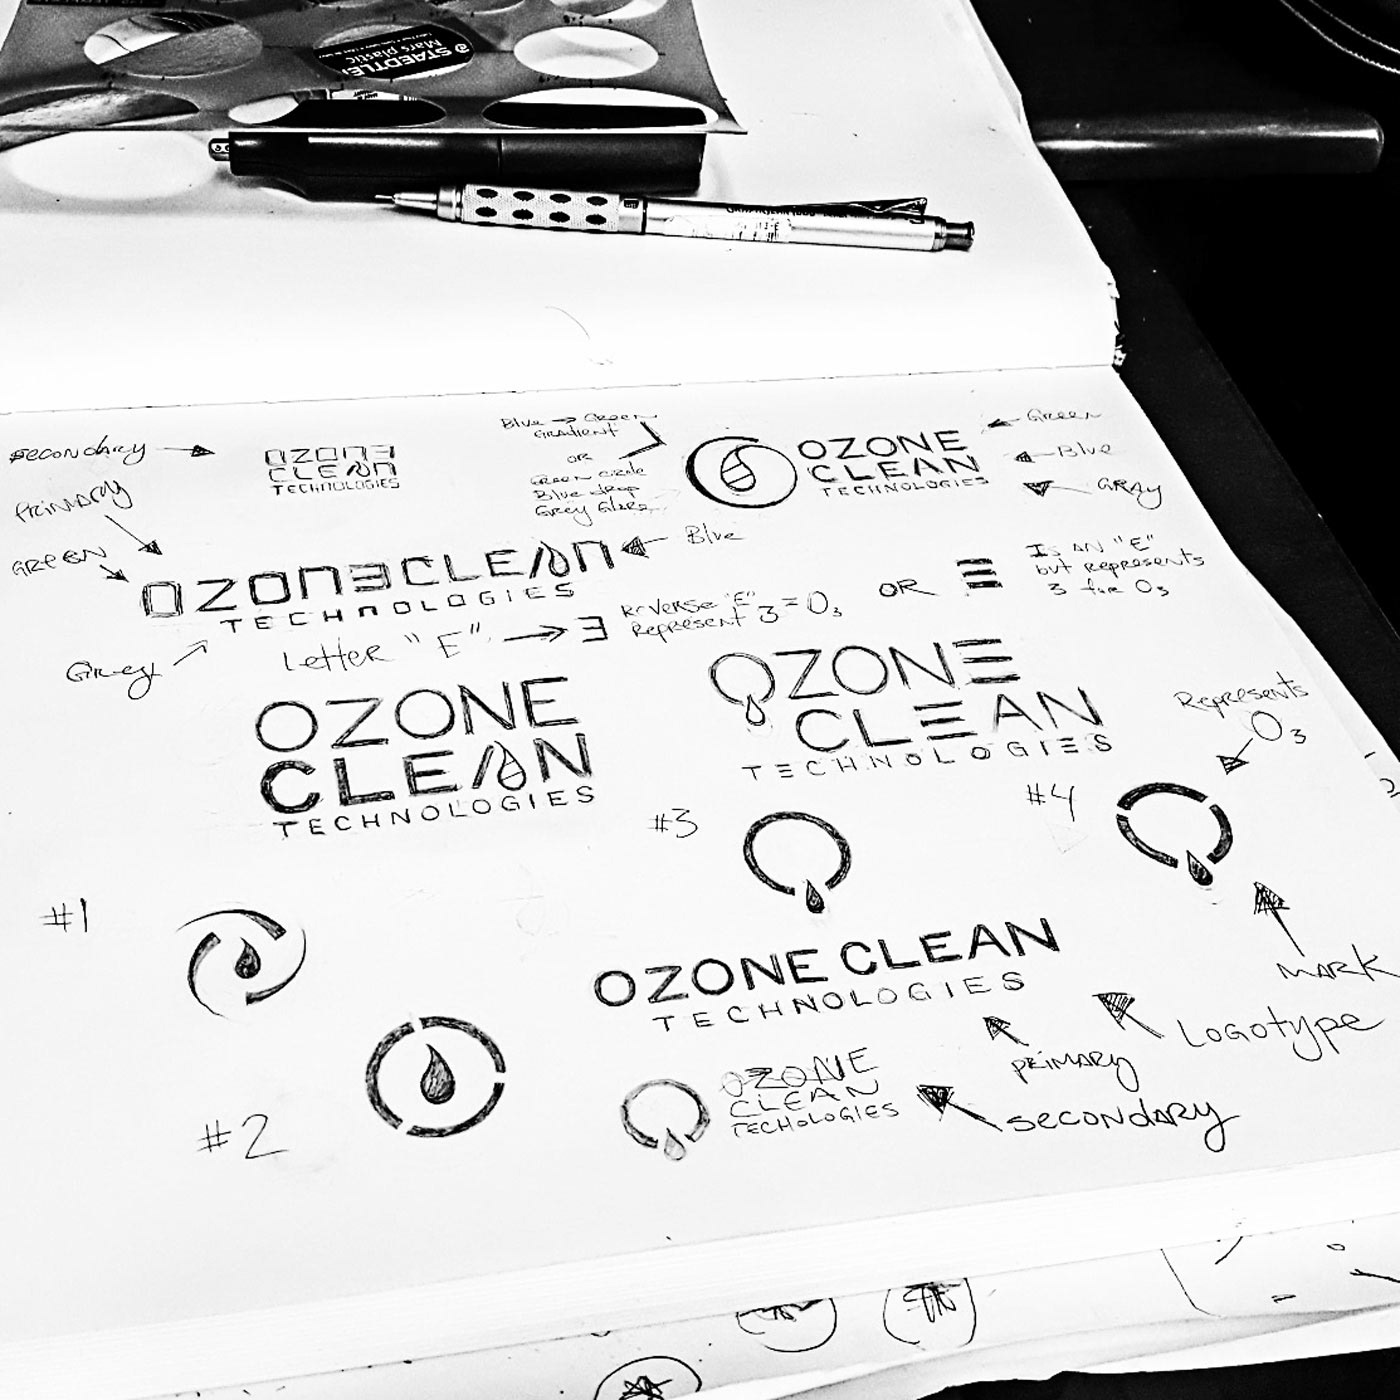 STAEDTLER
Mars plastic
secondary
OZONE
CLEAN
TECHNOLOGIES
Blue → Green
Gradient
OR
Green circle
Blue drop
Grey Glare
OZONE
CLEAN
TECHNOLOGIES
Green
Blue
GRAY
PRIMARY
GREEN
OZONECLEAN
TECHNOLOGIES
Blue
Grey
Letter "E" → Ǝ
Reverse "E"
Represent 3 = O3
OR
Is AN "E"
but represents
3 for O3
OZONE
CLEAN
TECHNOLOGIES
OZONE
CLEAN
TECHNOLOGIES
Represents
O3
#3
#4
#1
#2
OZONE CLEAN
TECHNOLOGIES
MARK
LOGOTYPE
PRIMARY
OZONE
CLEAN
TECHOLOGIES
secondARy